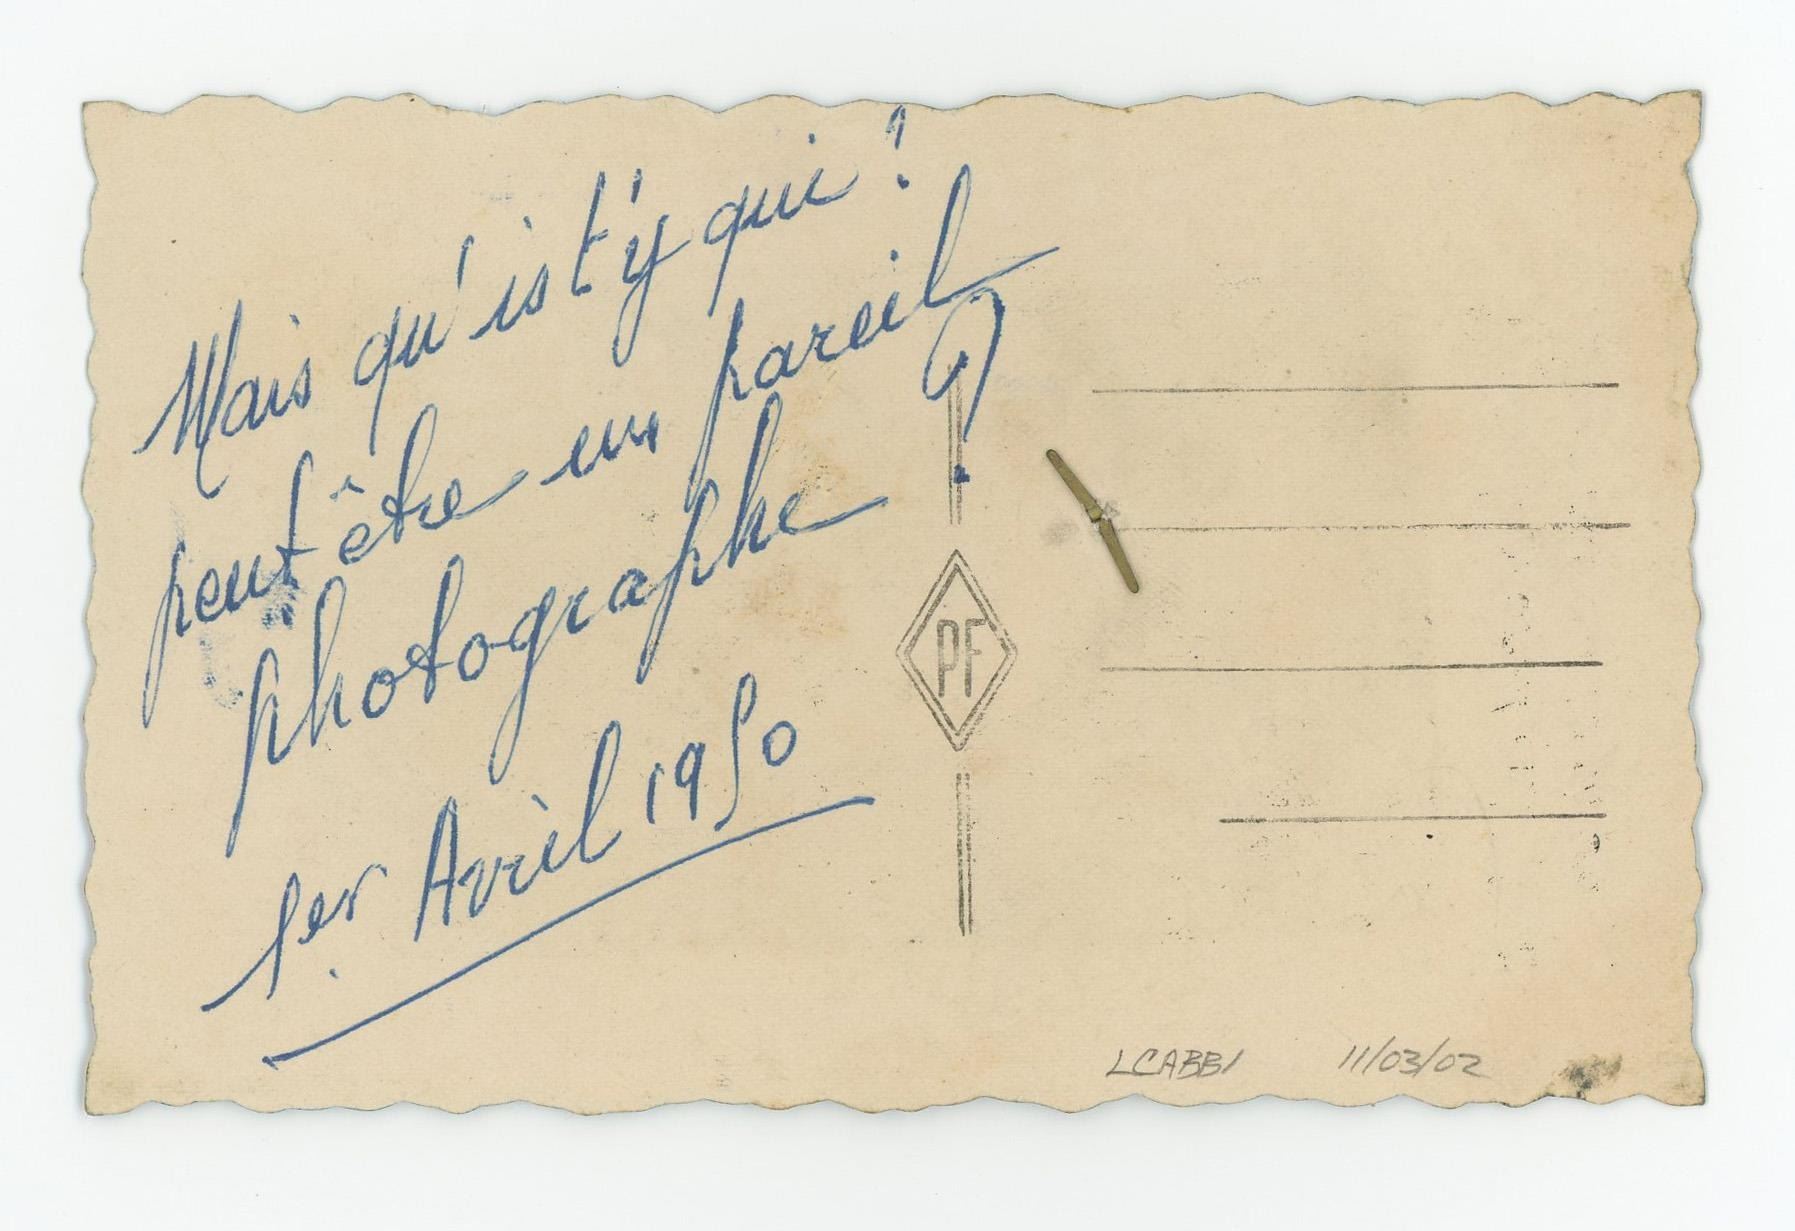 Mais qu'ist'y qui !
peut être un pareil
photographe ?
1er Avril 1950
PF
LCABB1 11/03/02